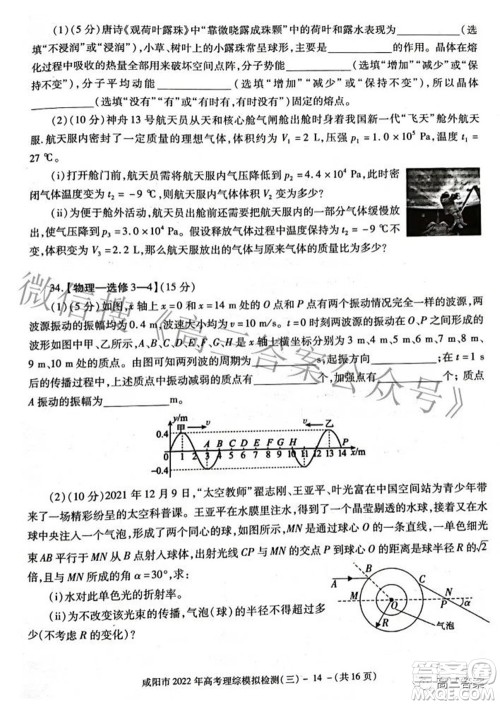 (1)(5分)唐诗《观荷叶露珠》中“靠微晓露成珠颗”中的荷叶和露水表现为________(选
填“不浸润”或“浸润”),小草、树叶上的小露珠常呈球形,主要是________的作用。晶体在熔
化过程中吸收的热量全部用来破坏空间点阵,分子势能________(选填“增加”“减少”或“保
持不变”),分子平均动能________(选填“增加”“减少”或“保持不变”),所以晶体
________(选填“没有”“有”或“可能有”)固定的熔点。
(2)(10分)神舟13号航天员从天和核心舱气闸舱出舱时身着我国新一代“飞天”舱外航天
服。航天服内密封了一定质量的理想气体,体积为V₁=2 L,压强p₁=1.0×10⁵ Pa,温度t₁=
27 ℃。
(i)打开舱门前,航天员将航天服内气压降低到p₂=4.4×10⁴ Pa,此时密
闭气体温度变为t₂=-9 ℃,则航天服内气体体积V₂变为多少?
(ii)为便于舱外活动,航天员出舱前还要把航天服内的一部分气体缓慢放
出,使气压降到p₃=3.0×10⁴ Pa。假设释放气体过程中温度不变,航天服
体积变为V₃=2.2 L,那么航天服放出的气体与原来气体的质量比为多少?
34.【物理—选修3—4】(15分)
(1)(5分)如图,x轴上x=0和x=14 m处的O、P两点有两个振动情况完全一样的波源,两
波源的振动的振幅均为0.4 m,波速大小均为v=10 m/s,t=0时刻在O、P之间的波形分别
如图中甲、乙所示,A、B、C、D、E、F、G、H是x轴上横坐标分别为3 m、4 m、5 m、7 m、8 m、
9 m、10 m、12 m处的质点。则两列波的周期为________s,两列波经________s相遇;在t=1 s
后的某时刻,上述质点中振动减弱的质点有________(填质点旁的相应字母);质点
A振动的振幅为________m。
y/m
甲
乙
v
v
0.4
-0.4
0
1 2 3 4 5 6 7 8 9 10 11 12 13 14 x/m
A B C D E F G H
P
(2)(10分)2021年12月9日,“太空教师”翟志刚、王亚平、叶光富在中国空间站为青少年带
来了一场精彩纷呈的太空科普课。王亚平在水膜里注水,得到了一个晶莹剔透的水球,接着
又在水球中注入一个气泡,如图所示。MN是通过水球、气泡球心O的一条直线,一束单色
光AB平行MN从B点射入球体,当没气泡时,光线从C射出,BC与MN的距离是球半径R的√2/2
倍,出射光线CP与MN所成的角α=30°,求:
(i)水对此单色光的折射率。
(ii)为不改变该光束的传播,气泡(球)的半径不得超过多少
(不考虑R的变化)?
A
B
C
M
O
R
N
P
α
气泡
咸阳市2022年高考理综模拟检测(三)-14-(共16页)
微信搜《高三答案公众号》
高三答案